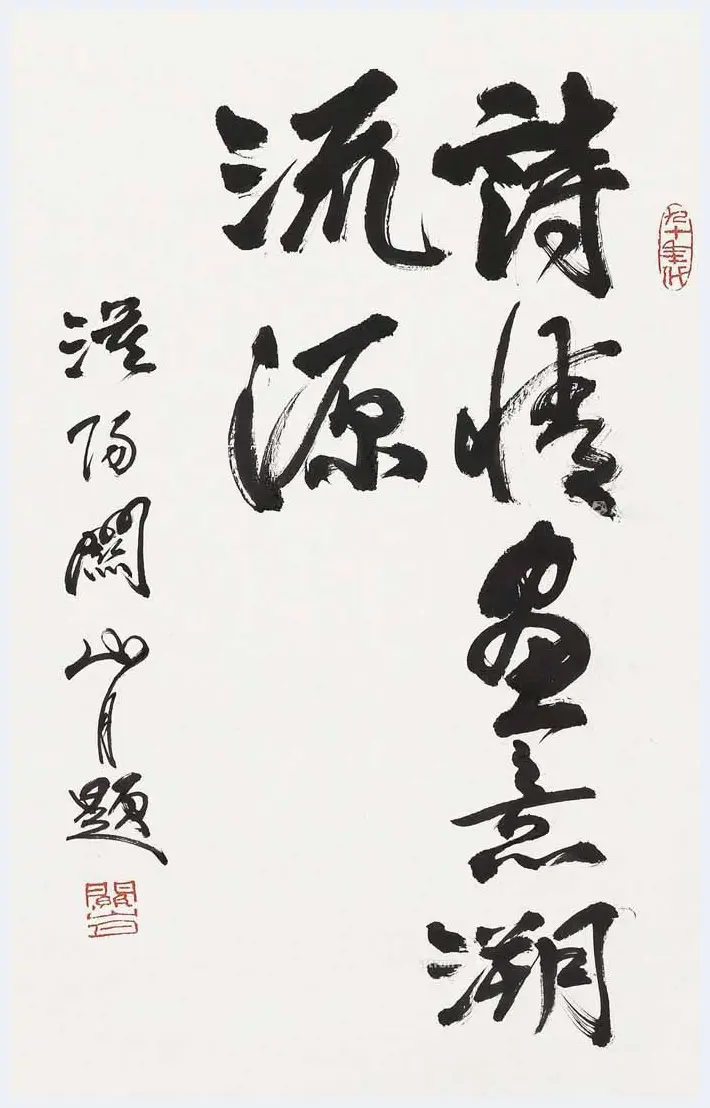 詩情畫意溯
流源
漠陽關山月題
九十年代
關山月